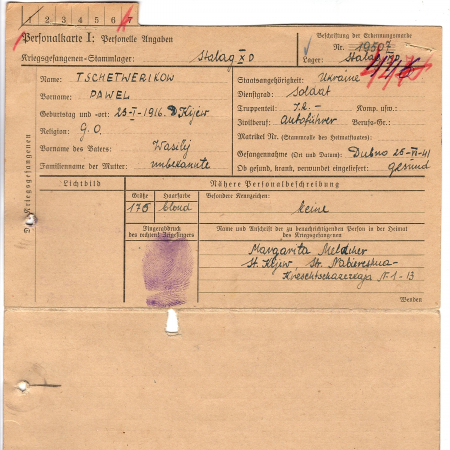 1 2 3 4 5 6
Personalkarte I: Personelle Angaben
Kriegsgefangenen-Stammlager: Stalag X D
Beschriftung der Erkennungsmarke
Nr. 19507
Lager: Stalag
Name: TSCHETWERIKOW
Vorname: PAWEL
Geburtstag und -ort: 23-I-1916. Kijew
Religion: G.O.
Vorname des Vaters: Wasilij
Familienname der Mutter: unbekannte
Staatsangehörigkeit: Ukraine
Dienstgrad: Soldat
Truppenteil: Komp. usw.:
Zivilberuf: autoführer Berufs-Gr.:
Matrikel Nr. (Stammrolle des Heimatstaates):
Gefangennahme (Ort und Datum): Dubno 25-VI-41
Ob gesund, krank, verwundet eingeliefert: gesund
Des Kriegsgefangenen
Lichtbild
Nähere Personalbeschreibung
Größe Haarfarbe Besondere Kennzeichen:
175 blond keine
Fingerabdruck
des rechten Zeigefingers
Name und Anschrift der zu benachrichtigenden Person in der Heimat
des Kriegsgefangenen
Margarita
St. Kijew, St.
N 1-13
Wenden